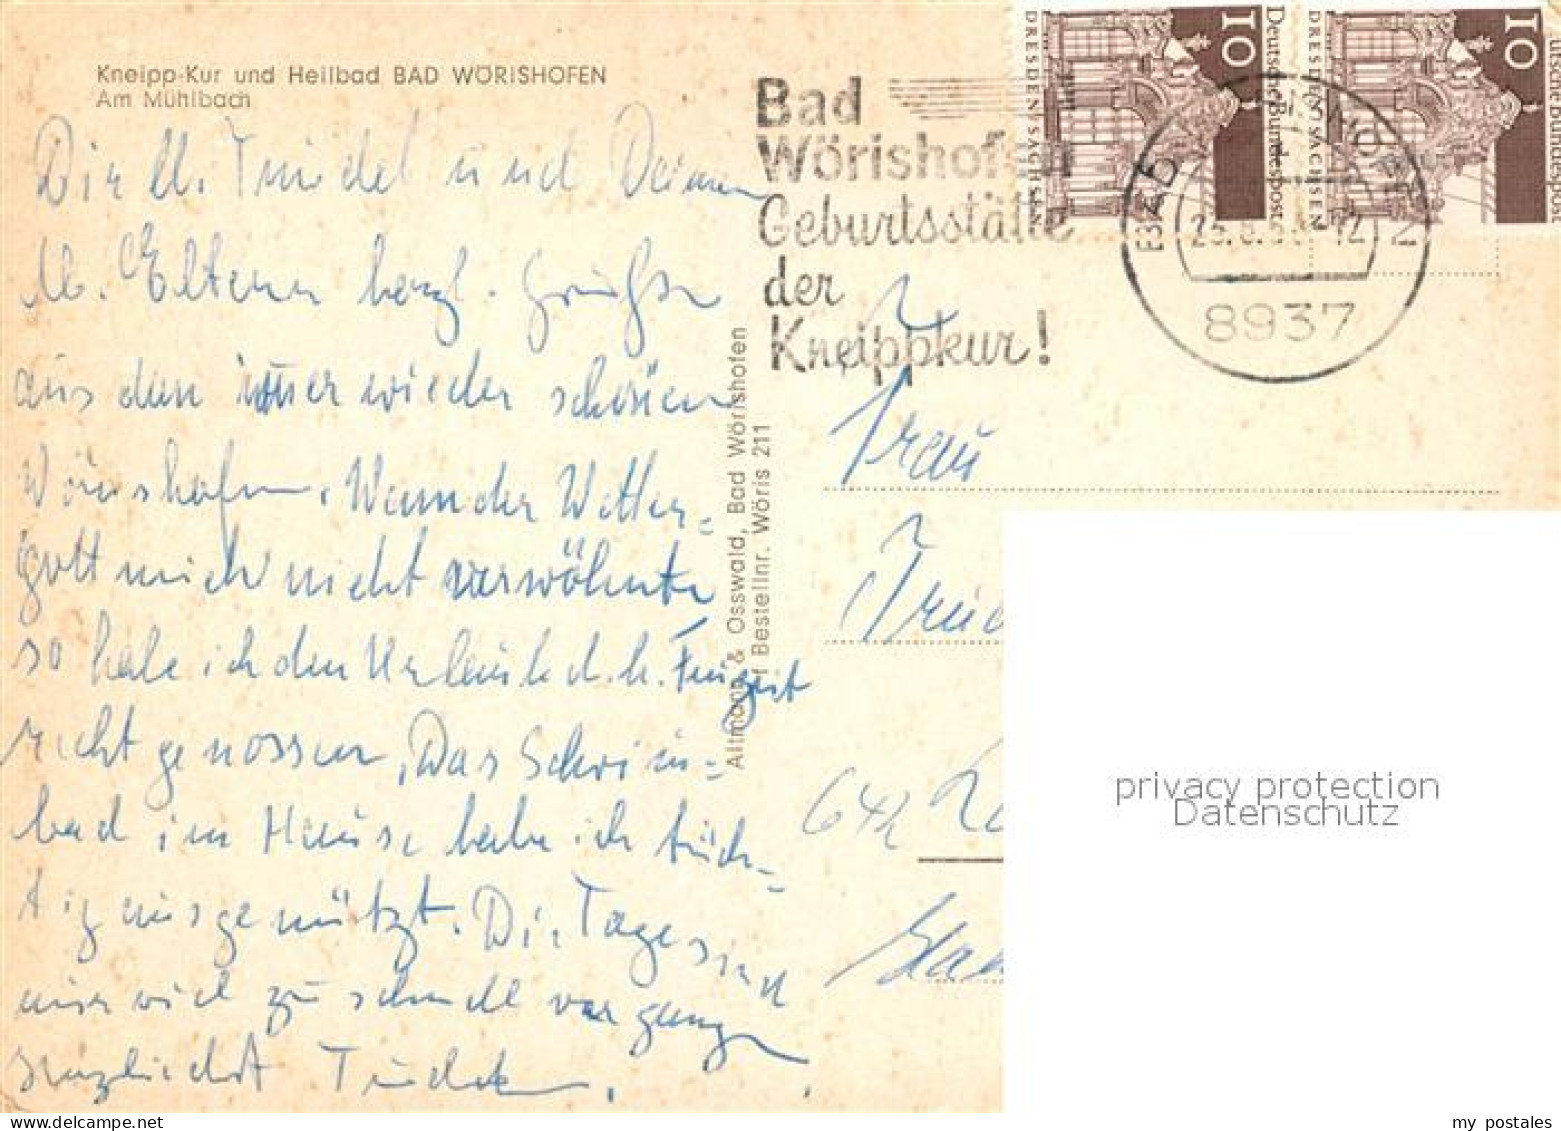 Kneipp-Kur und Heilbad BAD WÖRISHOFEN
Am Mühlbach
Dir lb. Trudel und Deinen
lb. Eltern herzl. Grüße
aus dem immer wieder schönen
Wörishofen. Wenn der Wetter-
gott mich nicht verwöhnte
so habe ich den Urlaub d.h. Freizeit
recht genossen, Das Schwimm-
bad im Hause habe ich tüch-
tig ausgenützt. Die Tage sind
nur viel zu schnell vergangen
herzlichst Trudchen.
Altmann & Osswald, Bad Wörishofen
Bestellnr. Wöris 211
Bad
Wörishofen
Geburtsstätte
der
Kneippkur!
10
Deutsche Bundespost
DRESDEN/SACHSEN
10
Deutsche Bundespost
DRESDEN/SACHSEN
8937
Frau
642
privacy protection
Datenschutz
my postales